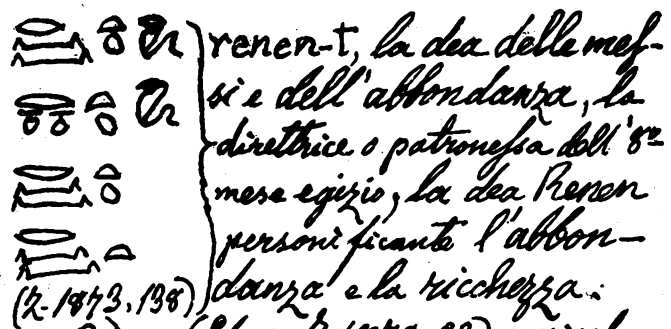 renen-t, la dea delle mes-
si e dell'abbondanza, la
direttrice o patronessa dell'8º
mese egizio, la dea Renen
personificante l'abbon-
danza e la ricchezza.
(Z-1873, 138)